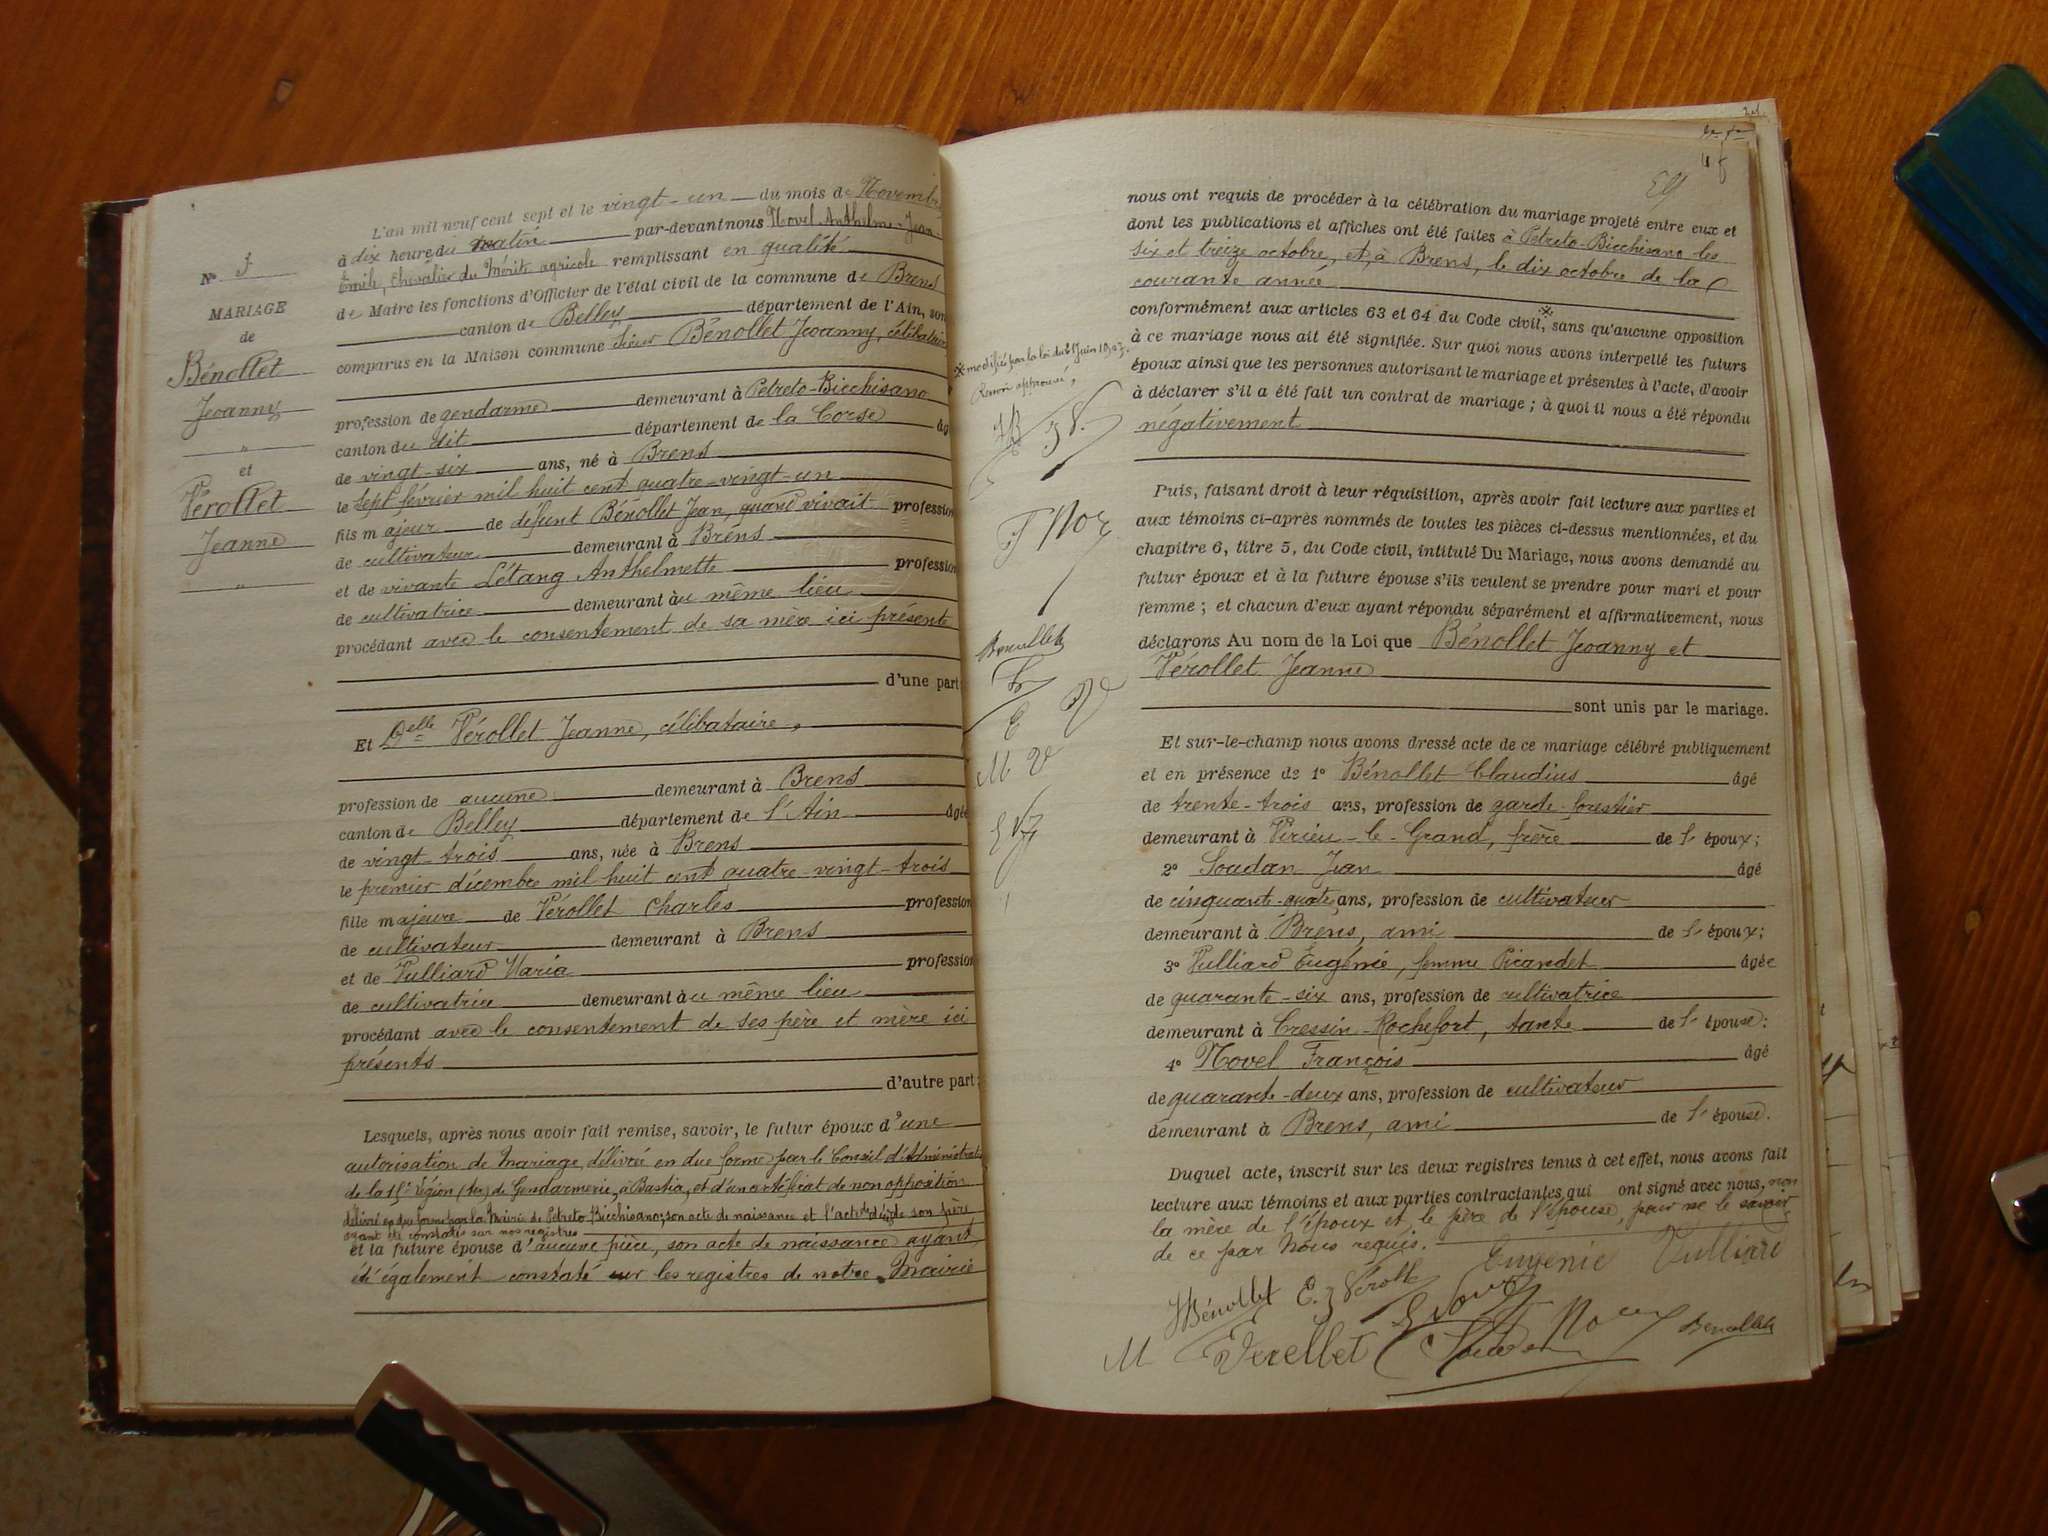 L'an mil neuf cent sept et le vingt-un du mois de Novembre
à dix heure du matin par-devant nous Novel Anthelme Jean
Emile, Chevalier du Mérite agricole remplissant en qualité
de Maire les fonctions d'Officier de l'état civil de la commune de Brens
canton de Belley département de l'Ain, sont
comparus en la Maison commune sieur Bénollet Jeoanny, célibataire
profession de gendarme demeurant à Petreto-Bicchisano
canton du dit département de la Corse âgé
de vingt-six ans, né à Brens
le sept février mil huit cent quatre-vingt-un
fils majeur de défunt Bénollet Jean, quand vivait profession
de cultivateur demeurant à Brens
et de vivante Létang Anthelmette profession
de cultivatrice demeurant au même lieu
procédant avec le consentement de sa mère ici présente
d'une part;
Et Delle Vérollet Jeanne, célibataire,
profession de aucune demeurant à Brens
canton de Belley département de l'Ain âgée
de vingt-trois ans, née à Brens
le premier décembre mil huit cent quatre-vingt-trois
fille majeure de Vérollet Charles profession
de cultivateur demeurant à Brens
et de Vulliard Maria profession
de cultivatrice demeurant au même lieu
procédant avec le consentement de ses père et mère ici
présents
d'autre part;
Lesquels, après nous avoir fait remise, savoir, le futur époux d'une
autorisation de mariage délivrée en due forme par le Conseil d'Administration
de la 15e Légion (ter) de Gendarmerie, à Bastia, et d'un certificat de non opposition
délivré en due forme par la Mairie de Petreto Bicchisano; son acte de naissance et l'acte de décès de son père
ayant été constatés sur nos registres
et la future épouse d'aucune pièce, son acte de naissance ayant
été également constaté sur les registres de notre Mairie
No
MARIAGE
de
Bénollet
Jeoanny
"
et
Vérollet
Jeanne
"
nous ont requis de procéder à la célébration du mariage projeté entre eux et
dont les publications et affiches ont été faites à Petreto-Bicchisano les
six et treize octobre, et, à Brens, le dix octobre de la
courante année
conformément aux articles 63 et 64 du Code civil,※ sans qu'aucune opposition
à ce mariage nous ait été signifiée. Sur quoi nous avons interpellé les futurs
époux ainsi que les personnes autorisant le mariage et présentes à l'acte, d'avoir
à déclarer s'il a été fait un contrat de mariage; à quoi il nous a été répondu
négativement
Puis, faisant droit à leur réquisition, après avoir fait lecture aux parties et
aux témoins ci-après nommés de toutes les pièces ci-dessus mentionnées, et du
chapitre 6, titre 5, du Code civil, intitulé Du Mariage, nous avons demandé au
futur époux et à la future épouse s'ils veulent se prendre pour mari et pour
femme; et chacun d'eux ayant répondu séparément et affirmativement, nous
déclarons Au nom de la Loi que Bénollet Jeoanny et
Vérollet Jeanne
sont unis par le mariage.
Et sur-le-champ nous avons dressé acte de ce mariage célébré publiquement
et en présence de 1o Bénollet Claudius âgé
de trente-trois ans, profession de garde-forestier
demeurant à Virieu-le-Grand, frère de l'époux;
2o Soudan Jean âgé
de cinquante-quatre ans, profession de cultivateur
demeurant à Brens, ami de l'époux;
3o Vulliard Eugénie, femme Picandet âgée
de quarante-six ans, profession de cultivatrice
demeurant à Cressin-Rochefort, tante de l'épouse;
4o Novel François âgé
de quarante-deux ans, profession de cultivateur
demeurant à Brens, ami de l'épouse.
Duquel acte, inscrit sur les deux registres tenus à cet effet, nous avons fait
lecture aux témoins et aux parties contractantes qui ont signé avec nous, non
la mère de l'époux et le père de l'épouse, pour ne le savoir
de ce par Nous requis.
Eugénie Vulliard
JBénollet
M Verollet
Benollet
※ modifiés par la loi du 21 Juin 1907.
Renvoi approuvé,
JB
F Nov
Benollet
M V